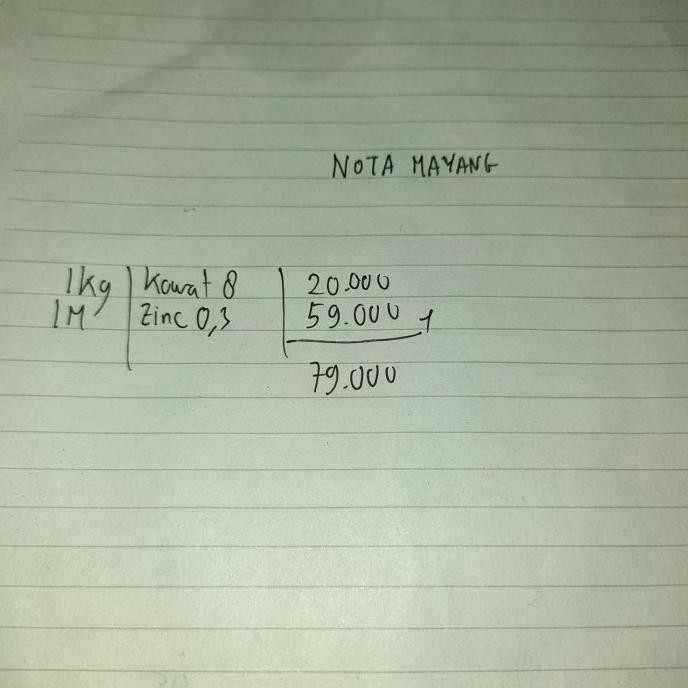 NOTA MAYANG
1kg Kawat 8 20.000
1M Zinc 0,3 59.000 +
79.000